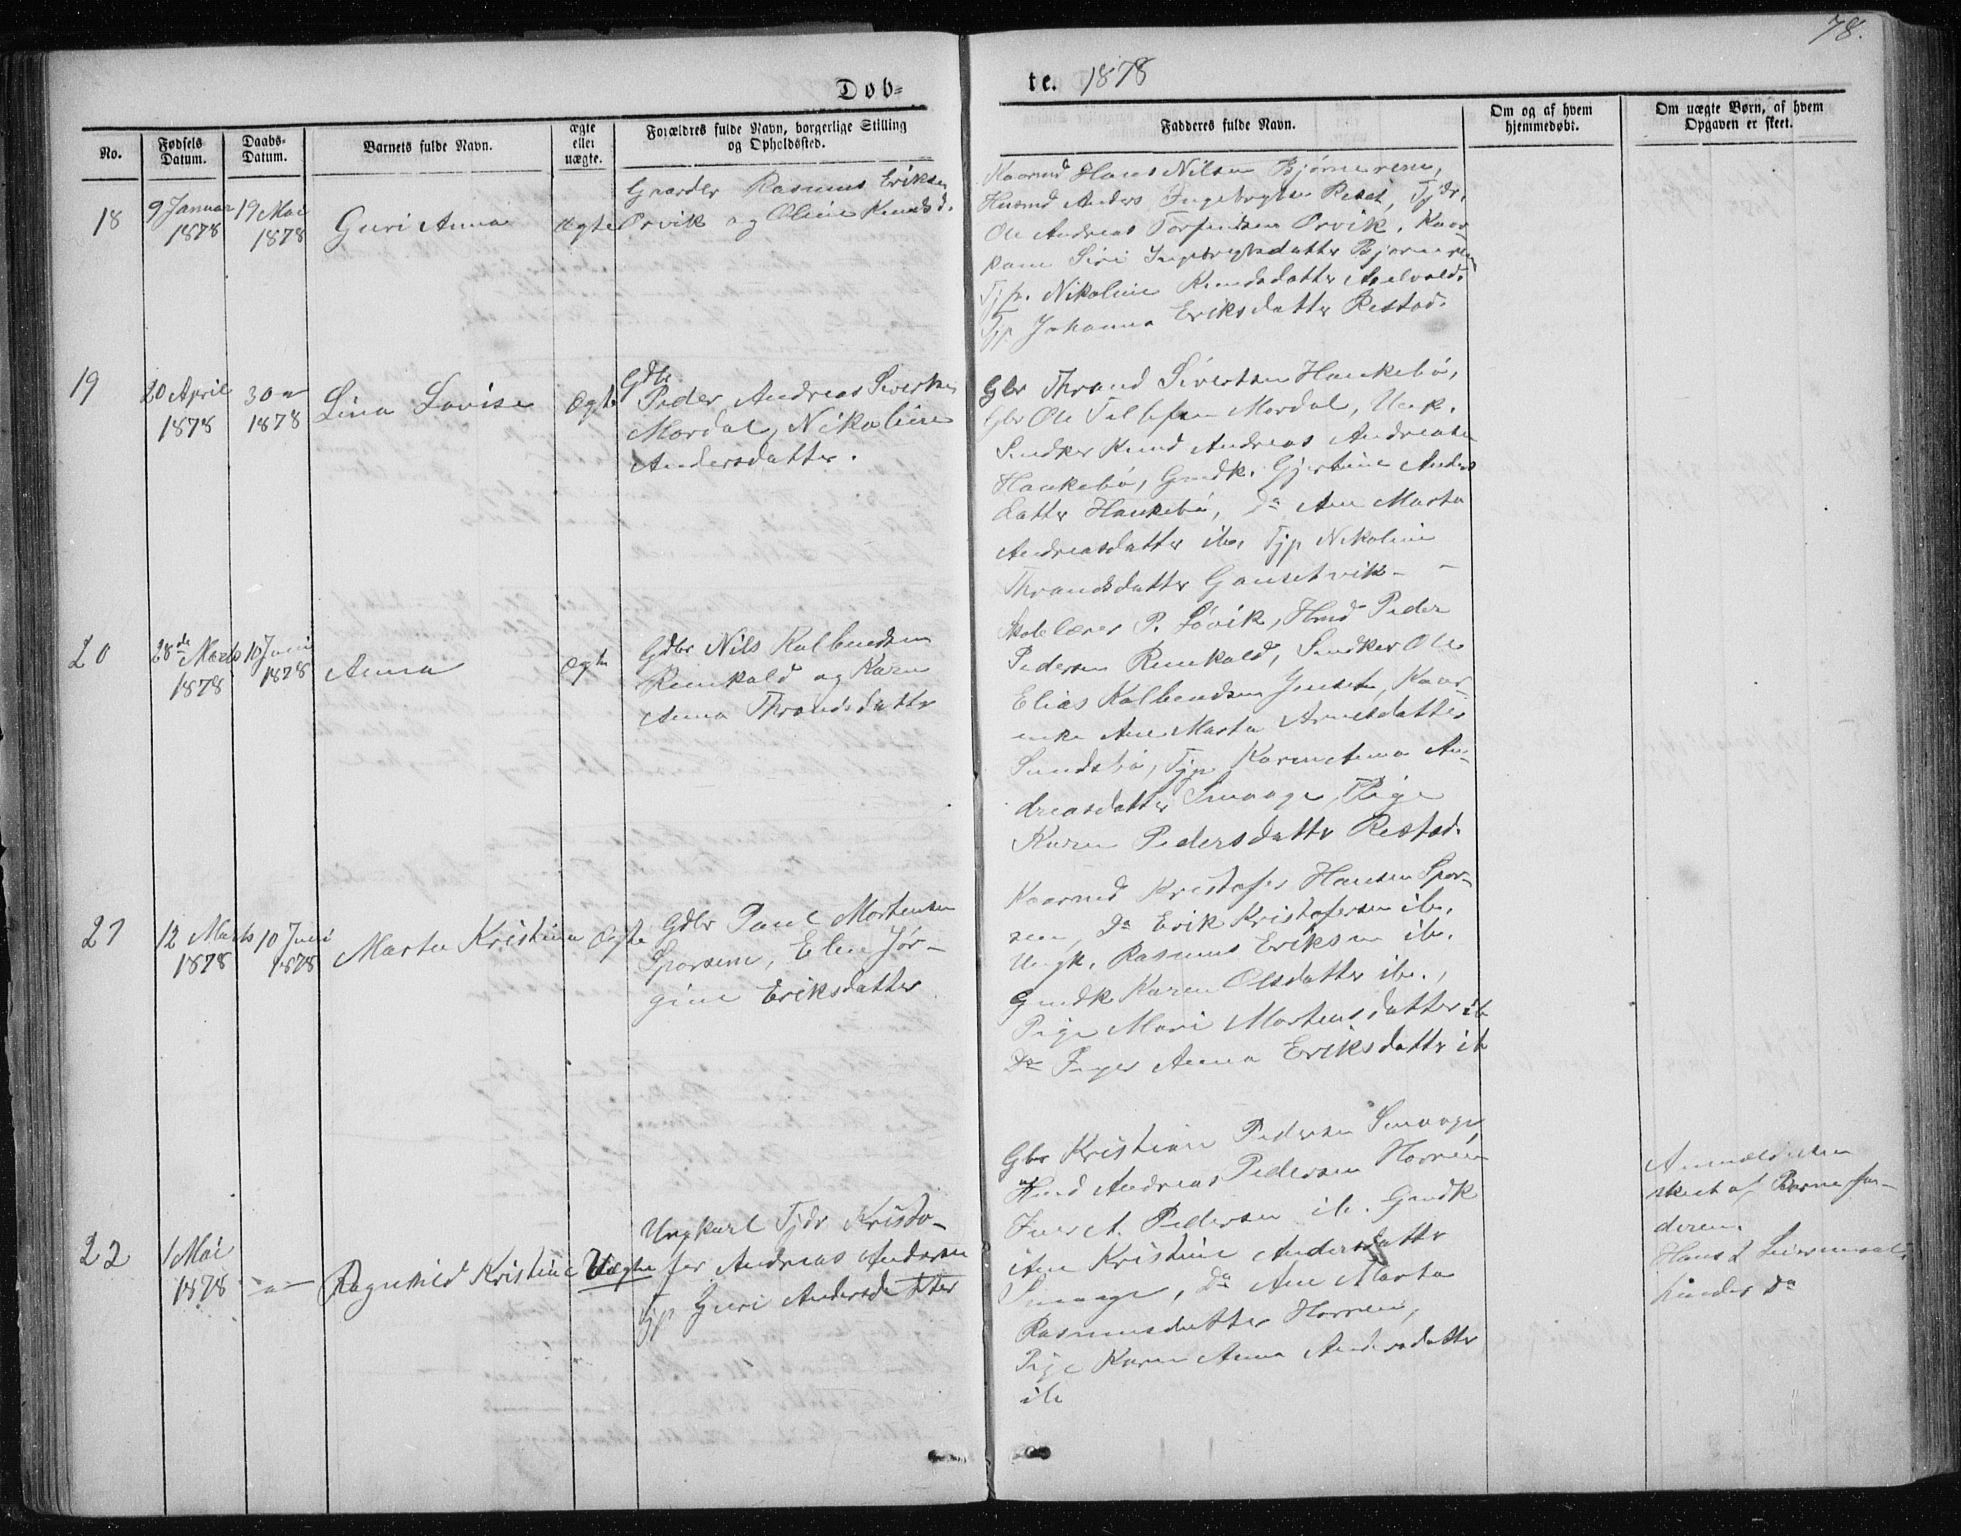 78.
Døb-
te. 1878
No.
Fødsels Datum.
Daabs-Datum.
Barnets fulde Navn.
ægte eller uægte.
Forældres fulde Navn, borgerlige Stilling og Opholdssted.
Fadderes fulde Navn.
Om og af hvem hjemmedøbt.
Om uægte Børn, af hvem Opgaven er skeet.
18
9 Januar 1878
19 Mai 1878
Guri Anna
Ægte
Gaardbr Rasmus Eriksen
Orvik og Oline Knudsd.
Kaarmd Hans Nilsen Bjørnerem,
Husmd Anders Ingebrigtsen Restad, Tjdr.
Ole Andreas Torfinnsen Orvik, Kaar-
kone Siri Ingebrigtsdatter Bjørnerem
Tjp. Nikoline Knudsdatter
Tjp Johanna Eriksdatter Restad.
19
20 April 1878
30 " 1878
Lina Lovise
Ægte
Gdbr
Peder Andreas Sivertsen
Mordal, Nikoline
Andersdatter.
Gbr Thrond Sivertsen Haukebø,
Gbr Ole Tollefsen Mordal, Ungk.
Snedker Knud Andreas Andreasen
Haukebø, Gmdk. Gjertine Anders
datter Haukebø, Do Ane Marta
Andreasdatter ib. Tjp Nikoline
Throndsdatter Gausetvik -
20
28de Marts 1878
10 Juni 1878
Anna
Ægte
Gdbr Nils Kolbendsen
Rindkold og Karen
Anna Throndsdatter
Skolelærer P. Løvik, Hmd Peder
Pedersen Rindkold, Snedker Ole
Elias Kolbendsen Juset, Kaar-
enke Ane Marta Arnetsdatter
Sundsbø, Tjp. Karen Anna An-
dreasdatter Smaage, Pige
Karen Pedersdatter Restad.
21
12 Marts 1878
10 Juni 1878
Marta Kristina
Ægte
Gdbr Paul Mortensen
Sporsem, Elen Jør-
gine Eriksdatter
Kaarmd Kristofer Hansen Spor-
sem, Do Erik Kristofersen ib.
Ungk. Rasmus Eriksen ib.
Gmdk Karen Olsdatter ib.,
Pige Mari Mortensdatter ib
Do Inger Anna Eriksdatter ib
22
1 Mai 1878
- " -
Ragnhild Kristine
Uægte
Ungkarl Tjdr Kristo-
fer Andreas Andersen
Tjp Guri Andersdatter
Gbr Kristian Pedersen Smaage
Hmd Andreas Pedersen Horrem
Iver A. Pedersen ib. Gmdk
Ane Kristine Andersdatter
Smaage, Do Ane Marta
Rasmusdatter Horrem,
Pige Karen Anna Andersdatter
ib
Anmeldelsen
skeet af Barnefa-
deren.
Hans 1 Leiermaal.
hendes Do